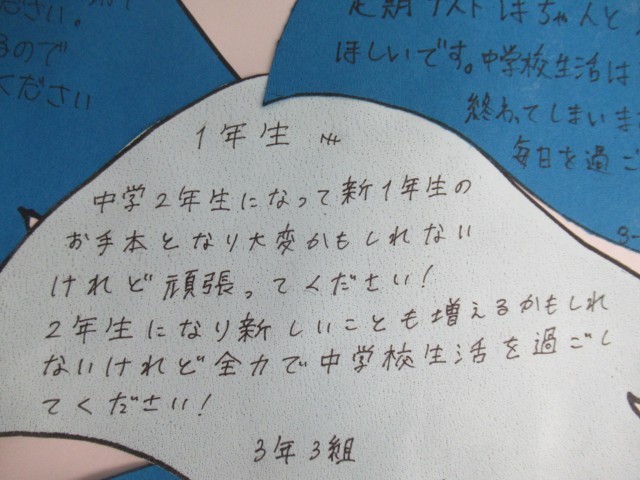 ださい。
るので
ください
定期テストはちゃんと
ほしいです。中学校生活は
終わってしまいま
毎日を過ご
1年生 へ
中学2年生になって新1年生の
お手本となり大変かもしれない
けれど頑張ってください!
2年生になり新しいことも増えるかもしれ
ないけれど全力で中学校生活を過ごし
てください!
3年3組